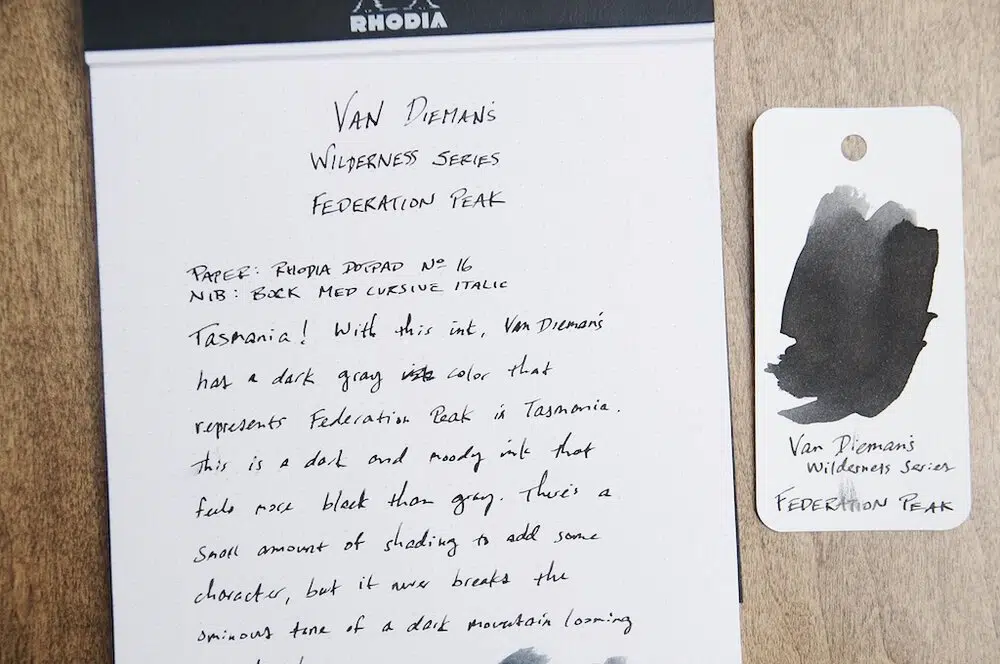 RHODIA
VAN DIEMAN'S
WILDERNESS SERIES
FEDERATION PEAK
PAPER: RHODIA DOTPAD Nº 16
NIB: BOCK MED CURSIVE ITALIC
Tasmania! With this ink, Van Dieman's
has a dark gray color that
represents Federation Peak in Tasmania.
This is a dark and moody ink that
feels more black than gray. There's a
small amount of shading to add some
character, but it never breaks the
ominous tone of a dark mountain looming
Van Dieman's
Wilderness Series
FEDERATION PEAK